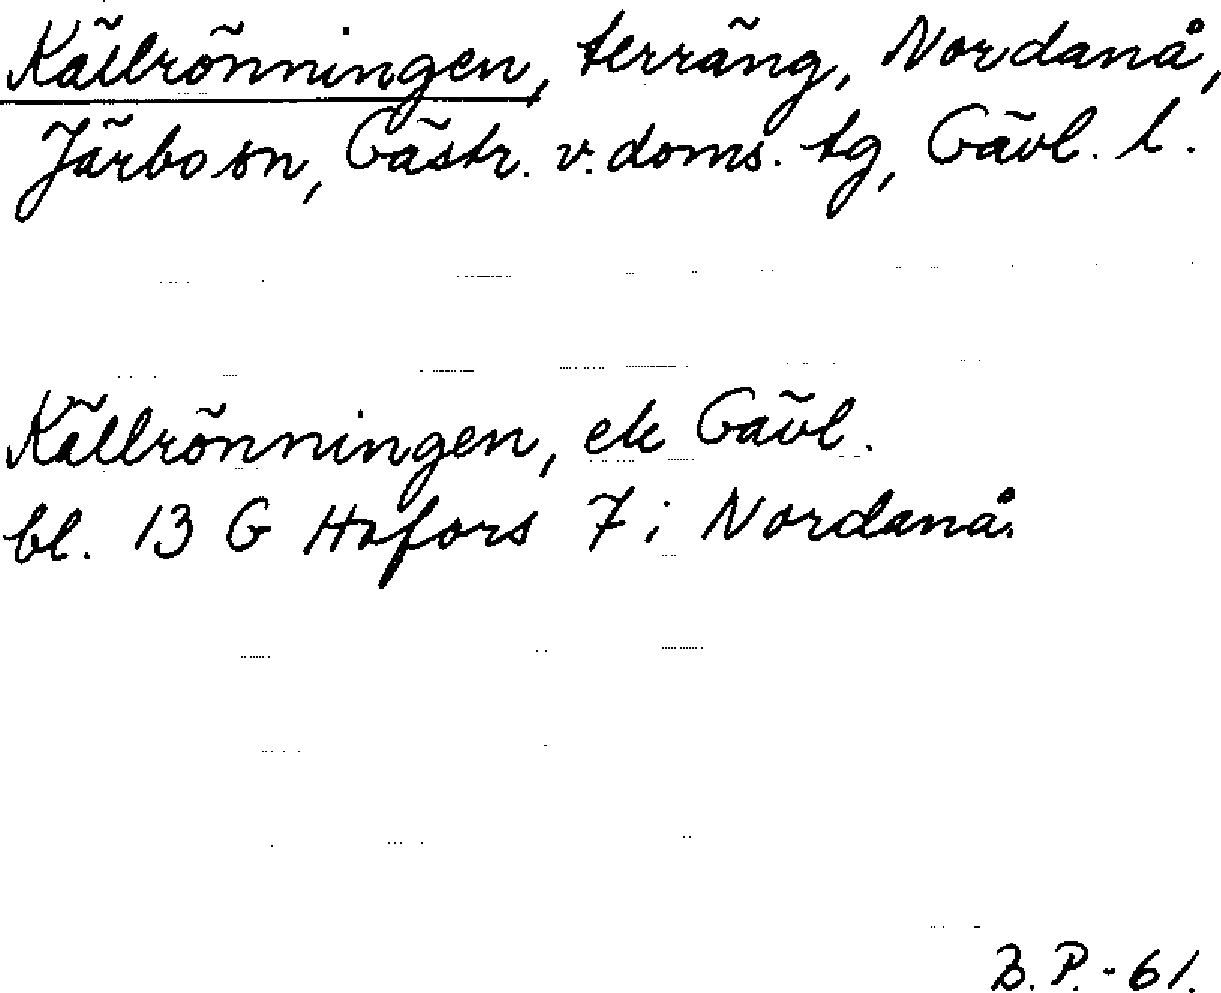 Källrönningen, terräng, Nordanå,
Järbo sn, Gästr. v. doms. tg, Gävl. l.
Källrönningen, ek Gävl.
bl. 13 G Hofors 7 i Nordanå.
B.P.-61.